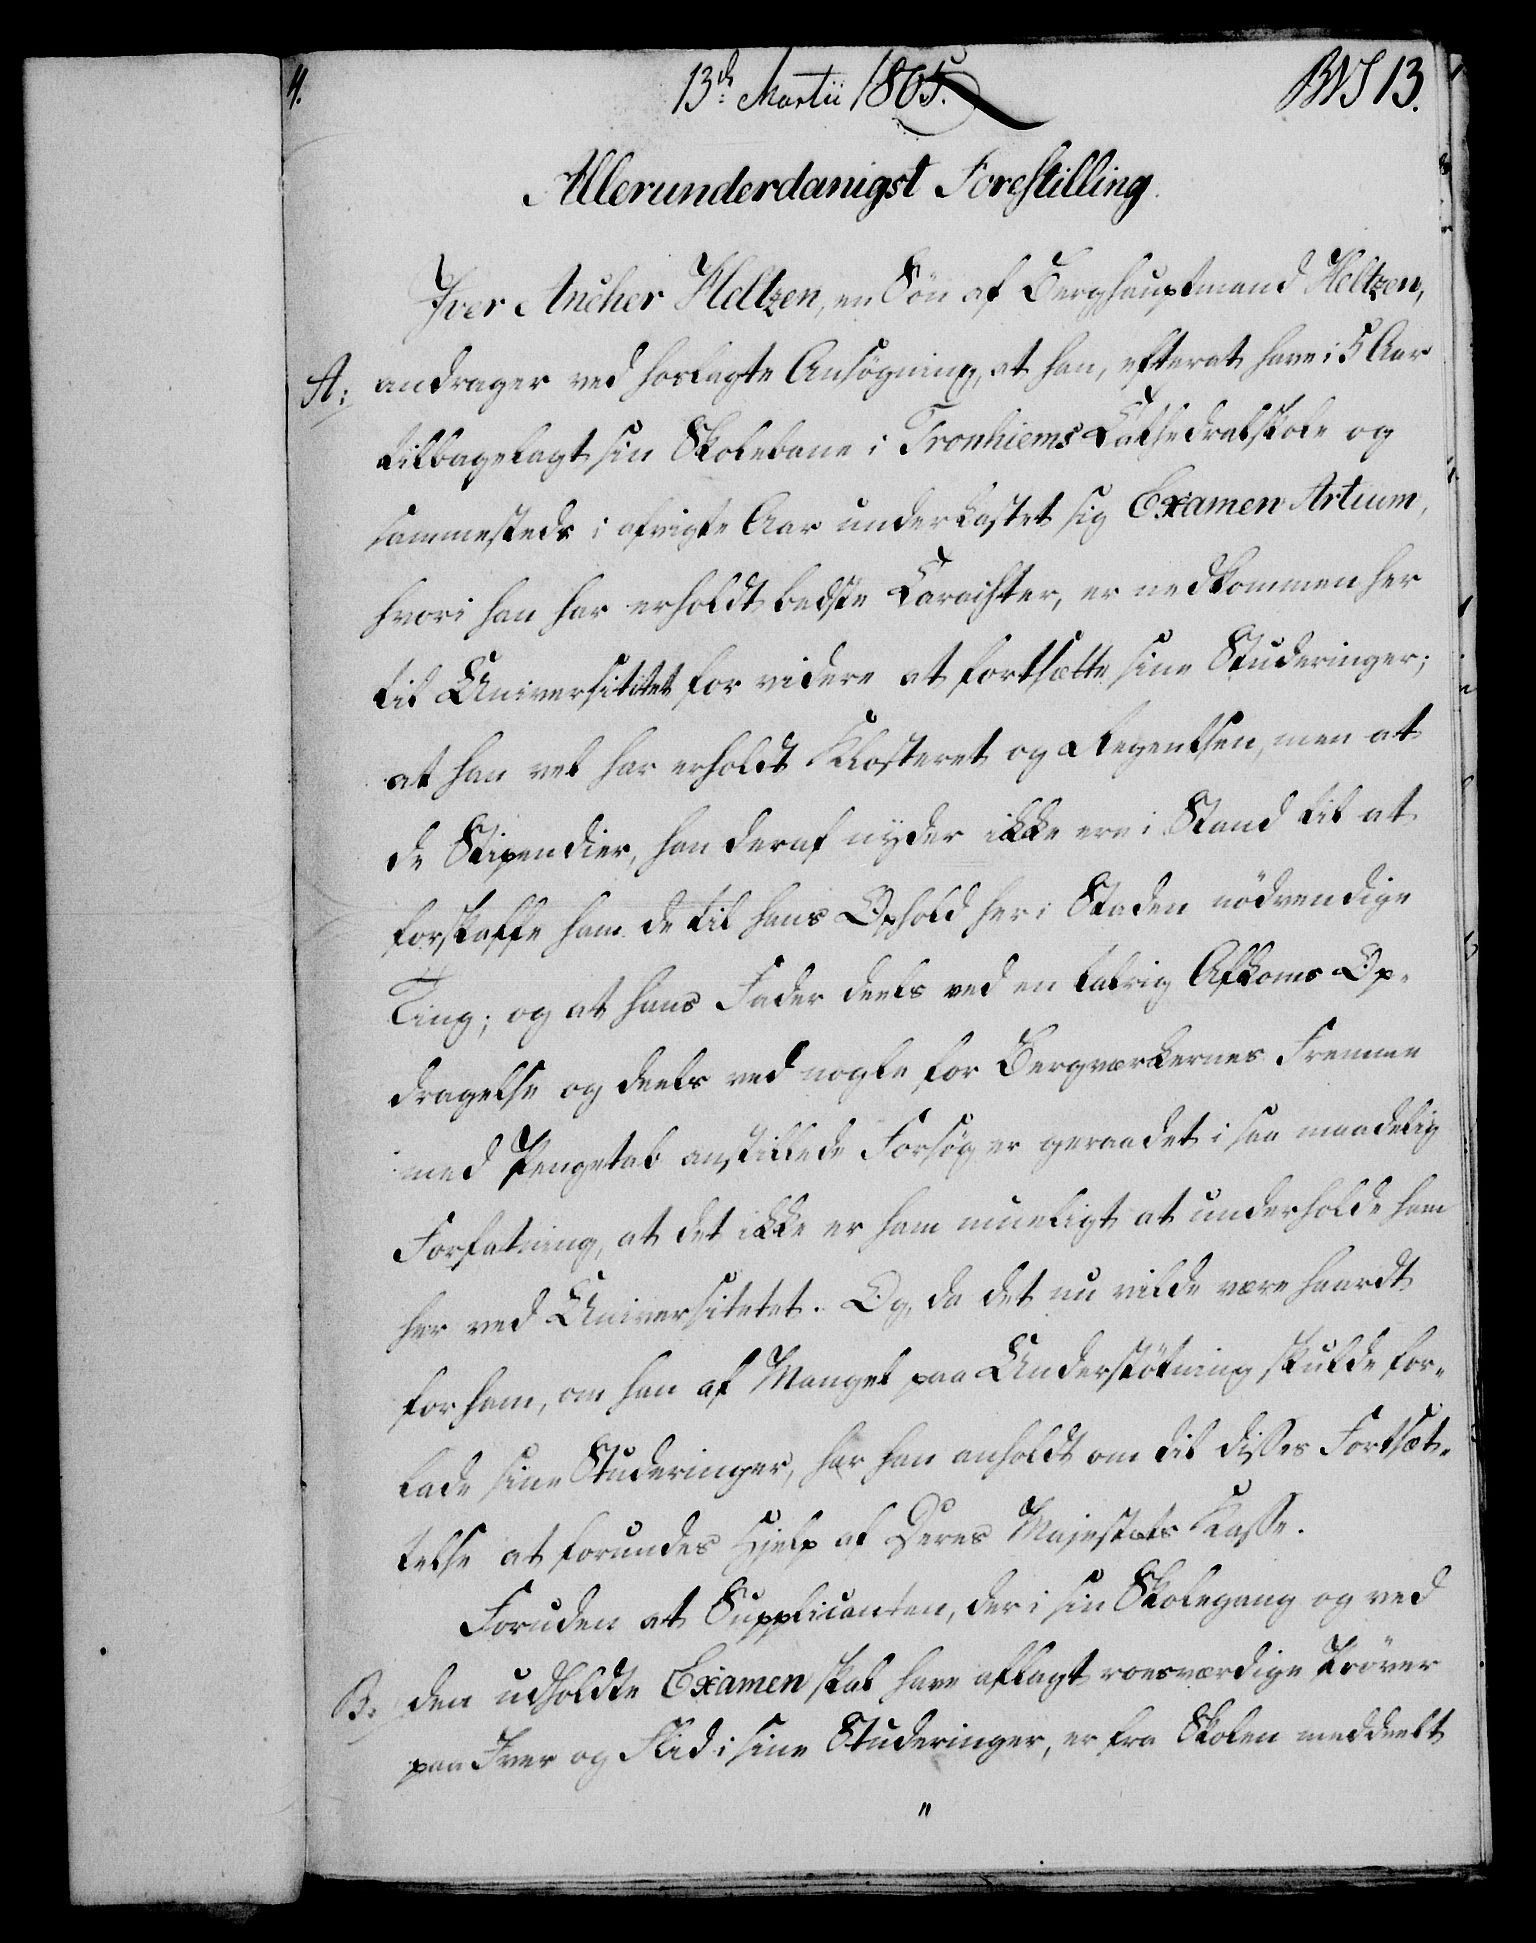 4.
13de Martii 1805.
BVS 13.
Allerunderdanigst Forestilling.
Iver Ancher Heltzen, en Søn af Berghauptmand Heltzen,
A: andrager ved hoslagte Ansøgning, at han, efterat have i 5 Aar
tilbagelagt sin Skolebane i Tronhiems Cathedralskole og
sammesteds i afvigte Aar underkastet sig Examen Artium,
hvori han har erholdt bedste Caracter, er nedkommen her
til Universitetet for videre at fortsætte sine Studeringer;
at han vel har erholdt Klosteret og Regentsen, men at
de Stipendier, han deraf nyder ikke ere i Stand til at
forskaffe ham de til hans Ophold her i Staden nödvendige
Ting; og at hans Fader deels ved en talrig Afkoms Op-
dragelse og deels ved nogle for Bergværkernes Fremme
med Pengetab anstillede Forsøg er geraadet i saa maadelig
Forfatning, at det ikke er ham mueligt at underholde ham
her ved Universitetet. Og, da det nu vilde være haardt
for ham, om han af Mangel paa Understötning skulde for-
lade sine Studeringer, har han anholdt om til disses Fortsæt-
telse at forundes Hjelp af Deres Majestæts Kasse.
Foruden at Supplicanten, der i sin Skolegang og ved
B: den udholdte Examen skal have aflagt roesværdige Pröver
paa Iver og Flid i sine Studeringer, er fra Skolen meddeelt
"